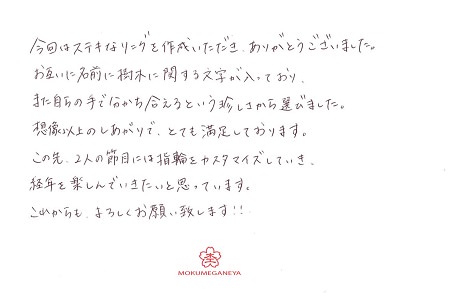 今回はステキなリングを作成いただき、ありがとうございました。
お互いに名前に樹木に関する文字が入っており、
また自らの手で分かち合えるという珍しさから選びました。
想像以上のしあがりで、とても満足しております。
この先、2人の節目には指輪をカスタマイズしていき、
経年を楽しんでいきたいと思っています。
これからも、よろしくお願い致します!!
杢
MOKUMEGANEYA